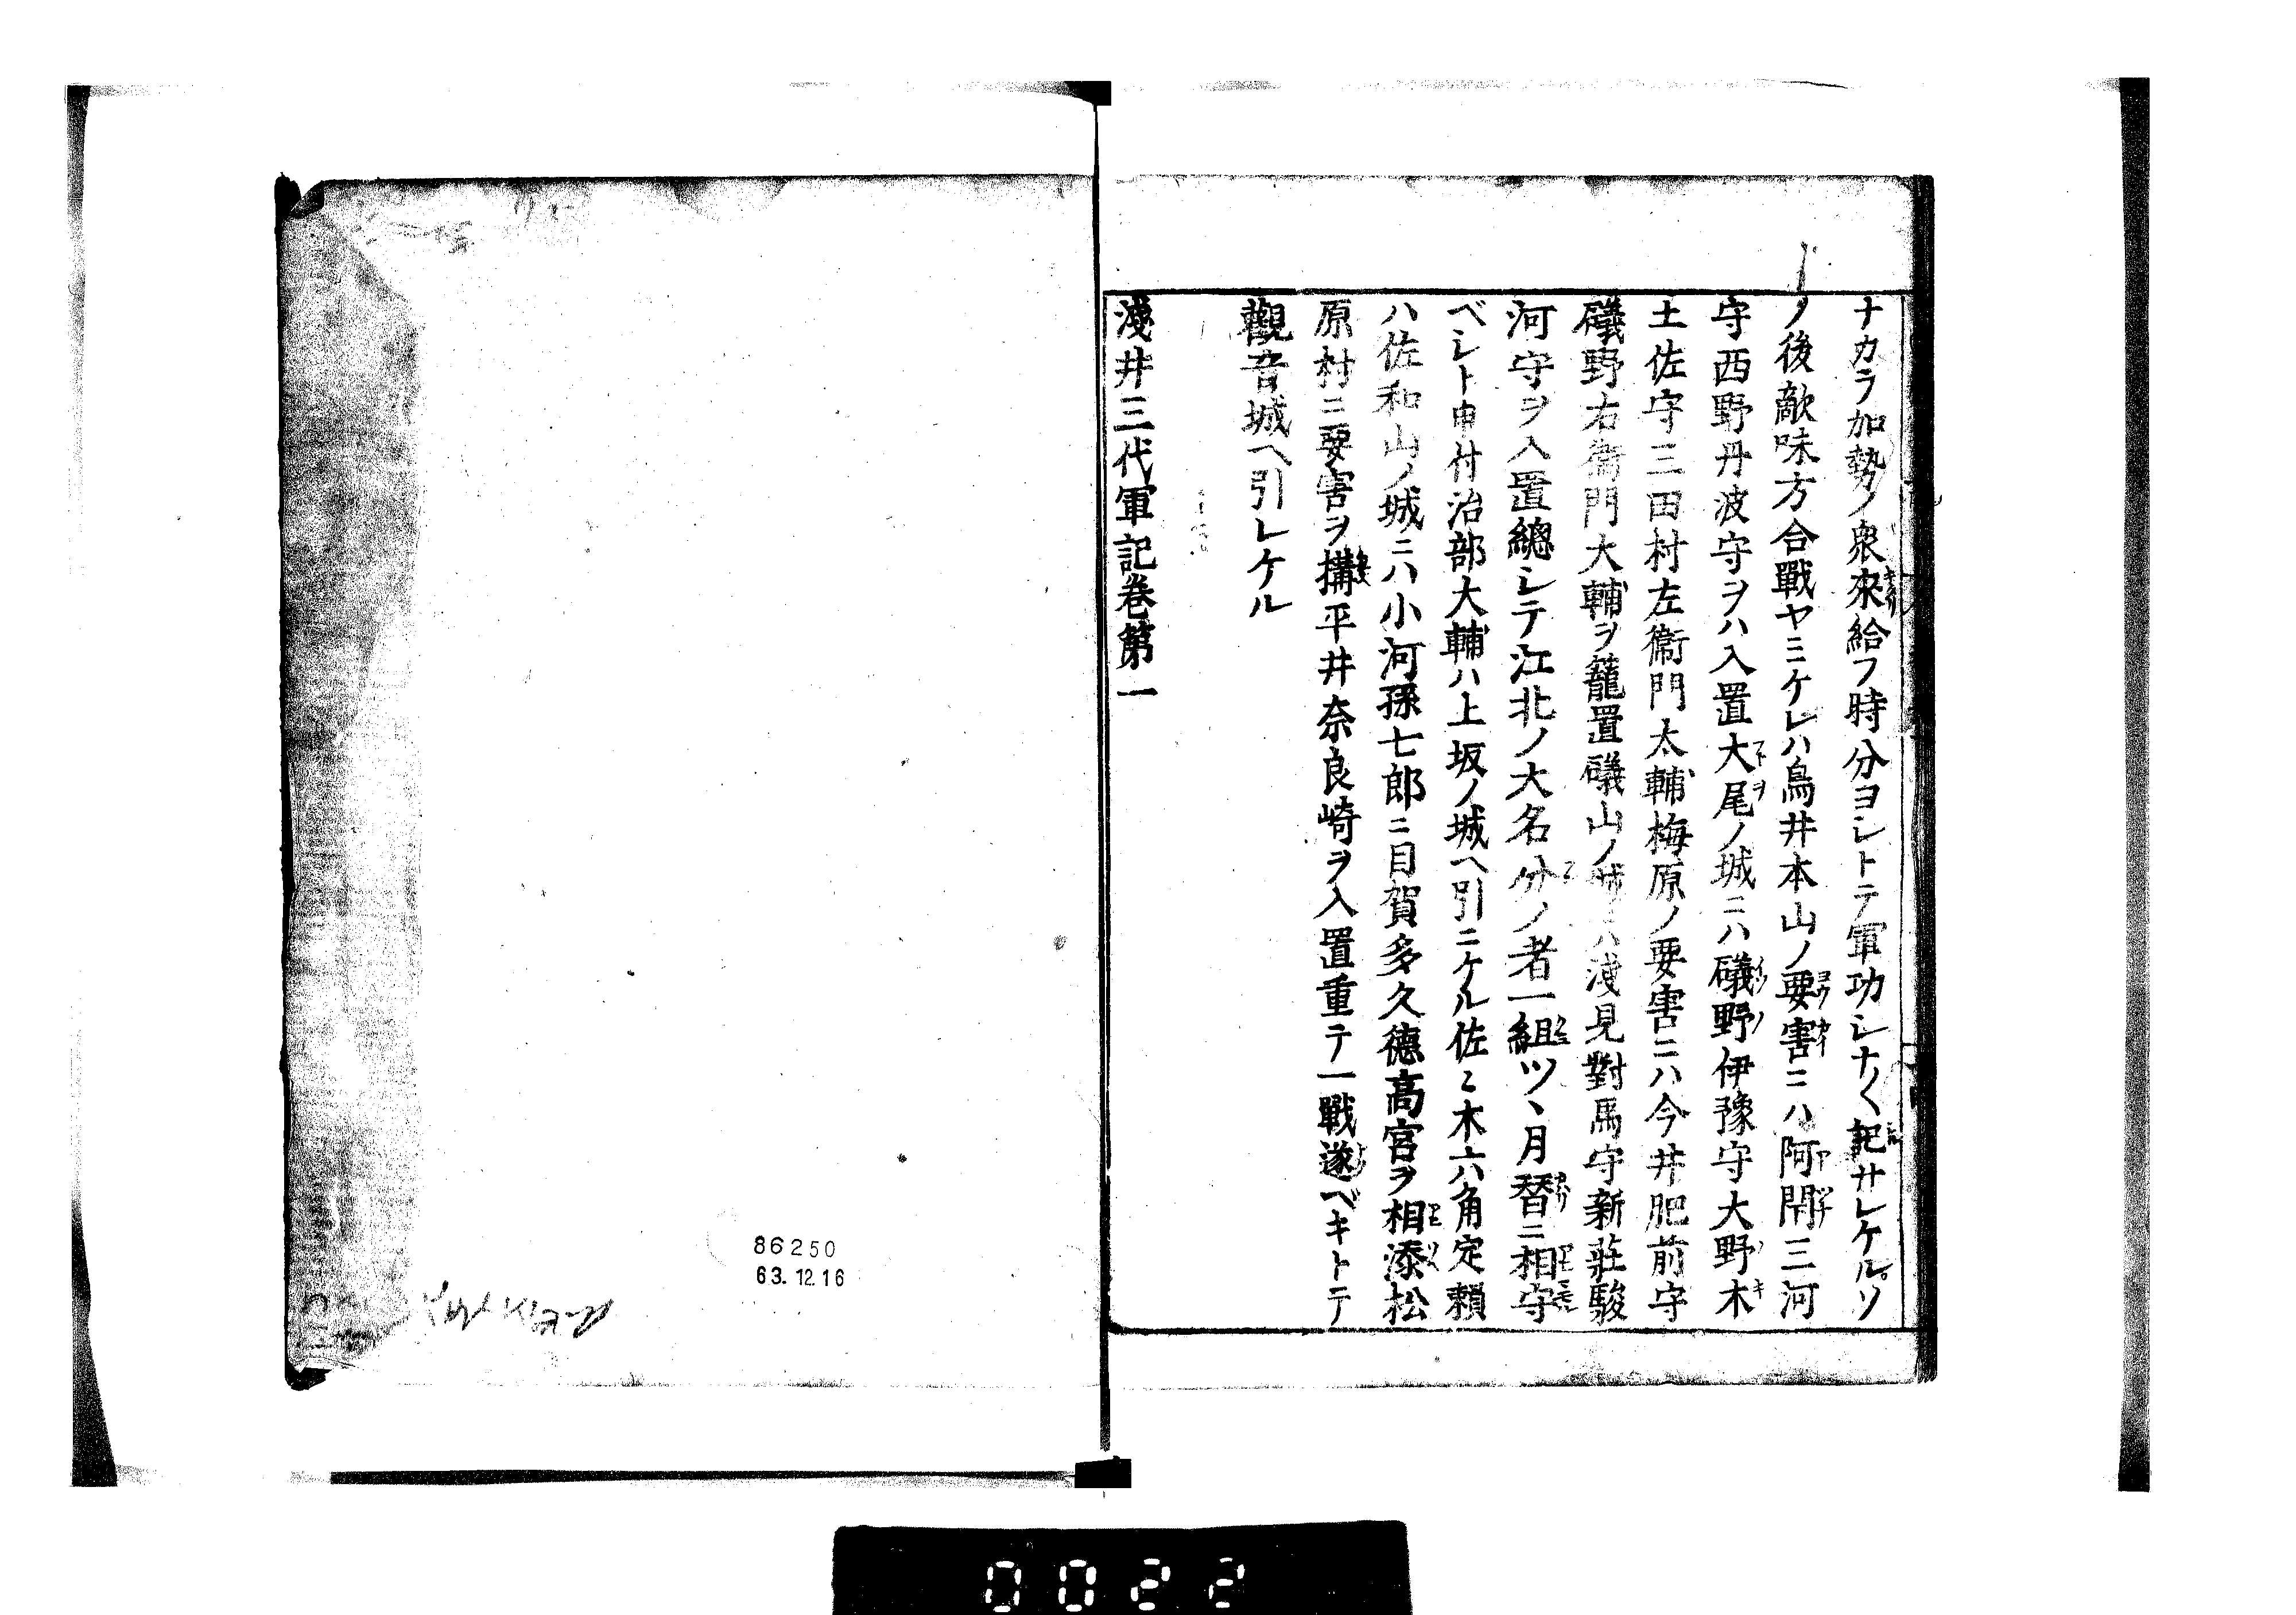 ナカラ加勢ノ衆來給フ時分ヨシトテ軍功シナ〱記サレケルソ
ノ後敵味方合戰ヤミケレハ鳥井本山ノ要害ニハ阿閉三河
守西野丹波守ヲハ入置大尾ノ城ニハ礒野伊豫守大野木
土佐守三田村左衞門太輔梅原ノ要害ニハ今井肥前守
礒野右衞門大輔ヲ籠置礒山ノ城ニハ淺見對馬守新莊駿
河守ヲ入置總シテ江北ノ大名分ノ者一組ツヽ月替ニ相守
ベシト申付治部大輔ハ上坂ノ城ヘ引ニケル佐々木六角定賴
ハ佐和山ノ城ニハ小河孫七郎ニ目賀多久德高宮ヲ相添松
原村ニ要害ヲ搆平井奈良崎ヲ入置重テ一戰遂ベキトテ
觀音城ヘ引レケル
淺井三代軍記卷第一
86250
63.12.16
0022